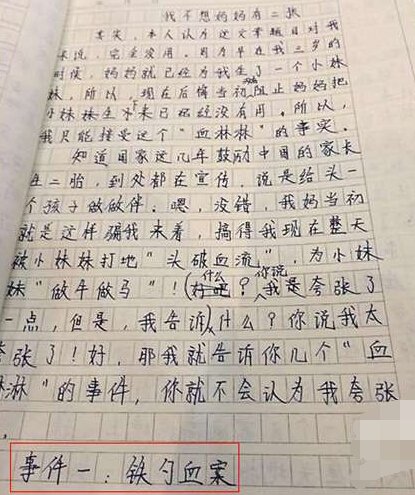 我不想妈妈有二胎
其实，本人认为这文章题目对我
来说，完全没用。因为早在我三岁的
时候，妈妈就已经为我生了一个小妹
妹，所以，现在后悔当初没阻止妈妈把
小妹妹生下来已经没有用。所以，
我只能接受这个“血林林”的事实。
知道国家这几年鼓励中国的家长
生二胎，到处都在宣传，说是给头一
个孩子做做伴。嗯，没错，我妈当初
就是这样骗我来着，搞得我现在整天
被小妹妹打地“头破血流”，为小妹
妹“做牛做马”！(什么？你说我是夸张了
一点，但是，我告诉)什么？你说我太
夸张了！好，那我就告诉你几个“血
淋淋”的事件，你就不会认为我夸张
，
事件一：铁勺血案